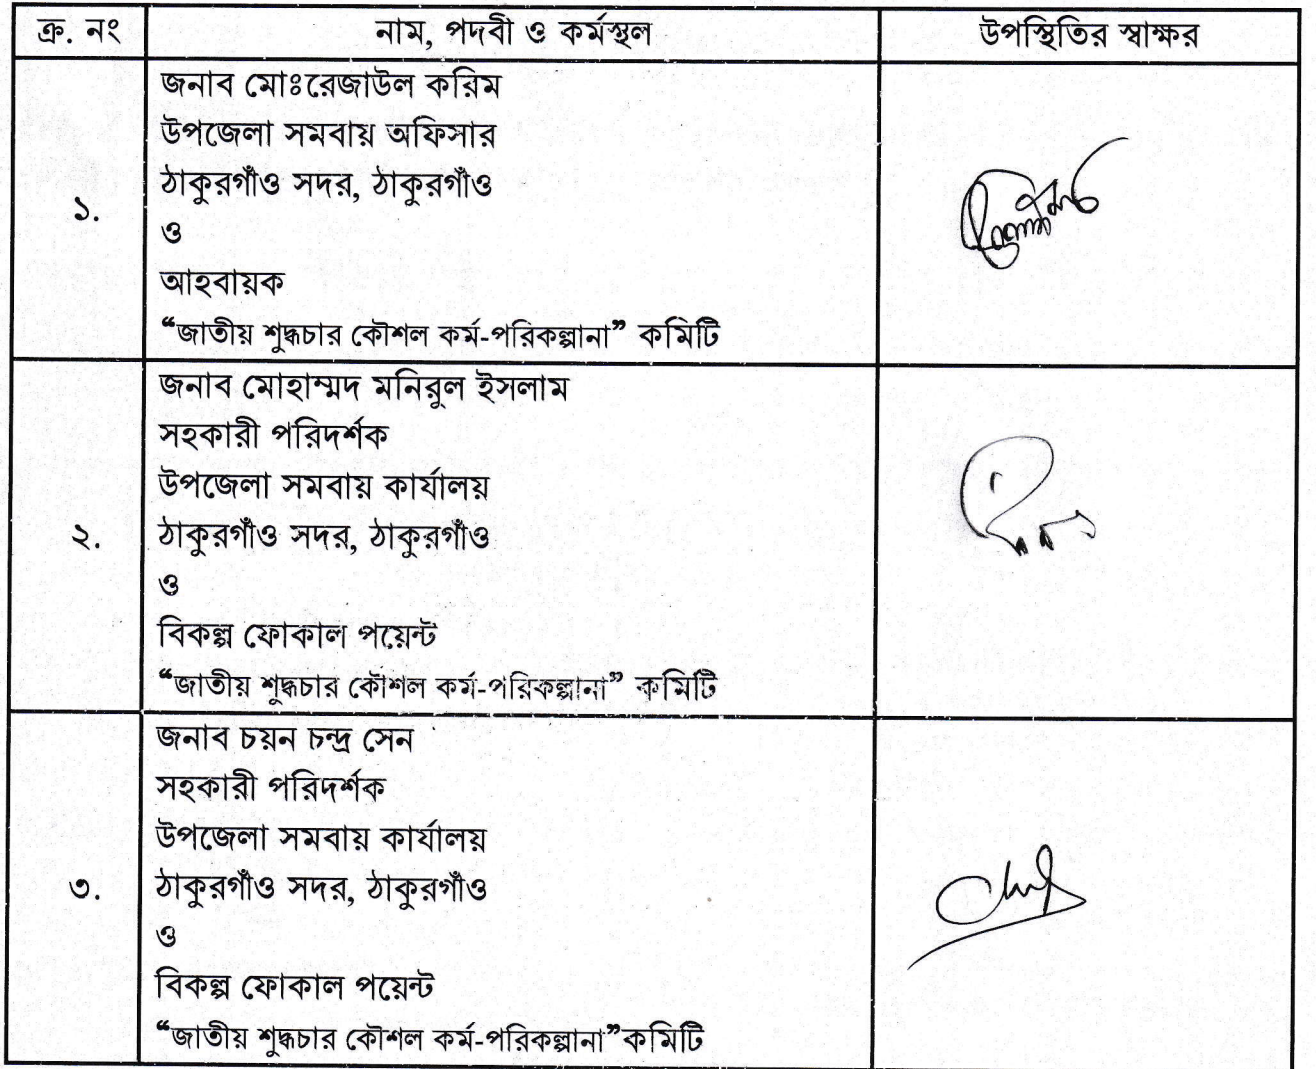 ক্র. নং নাম, পদবী ও কর্মস্থল উপস্থিতির স্বাক্ষর
জনাব মোঃরেজাউল করিম
উপজেলা সমবায় অফিসার
ঠাকুরগাঁও সদর, ঠাকুরগাঁও
১.
ও
আহবায়ক
“জাতীয় শুদ্ধচার কৌশল কর্ম-পরিকল্পানা” কমিটি
জনাব মোহাম্মদ মনিরুল ইসলাম
সহকারী পরিদর্শক
উপজেলা সমবায় কার্যালয়
২. ঠাকুরগাঁও সদর, ঠাকুরগাঁও
ও
বিকল্প ফোকাল পয়েন্ট
“জাতীয় শুদ্ধচার কৌশল কর্ম-পরিকল্পানা” কমিটি
জনাব চয়ন চন্দ্র সেন
সহকারী পরিদর্শক
উপজেলা সমবায় কার্যালয়
৩. ঠাকুরগাঁও সদর, ঠাকুরগাঁও
ও
বিকল্প ফোকাল পয়েন্ট
“জাতীয় শুদ্ধচার কৌশল কর্ম-পরিকল্পানা”কমিটি